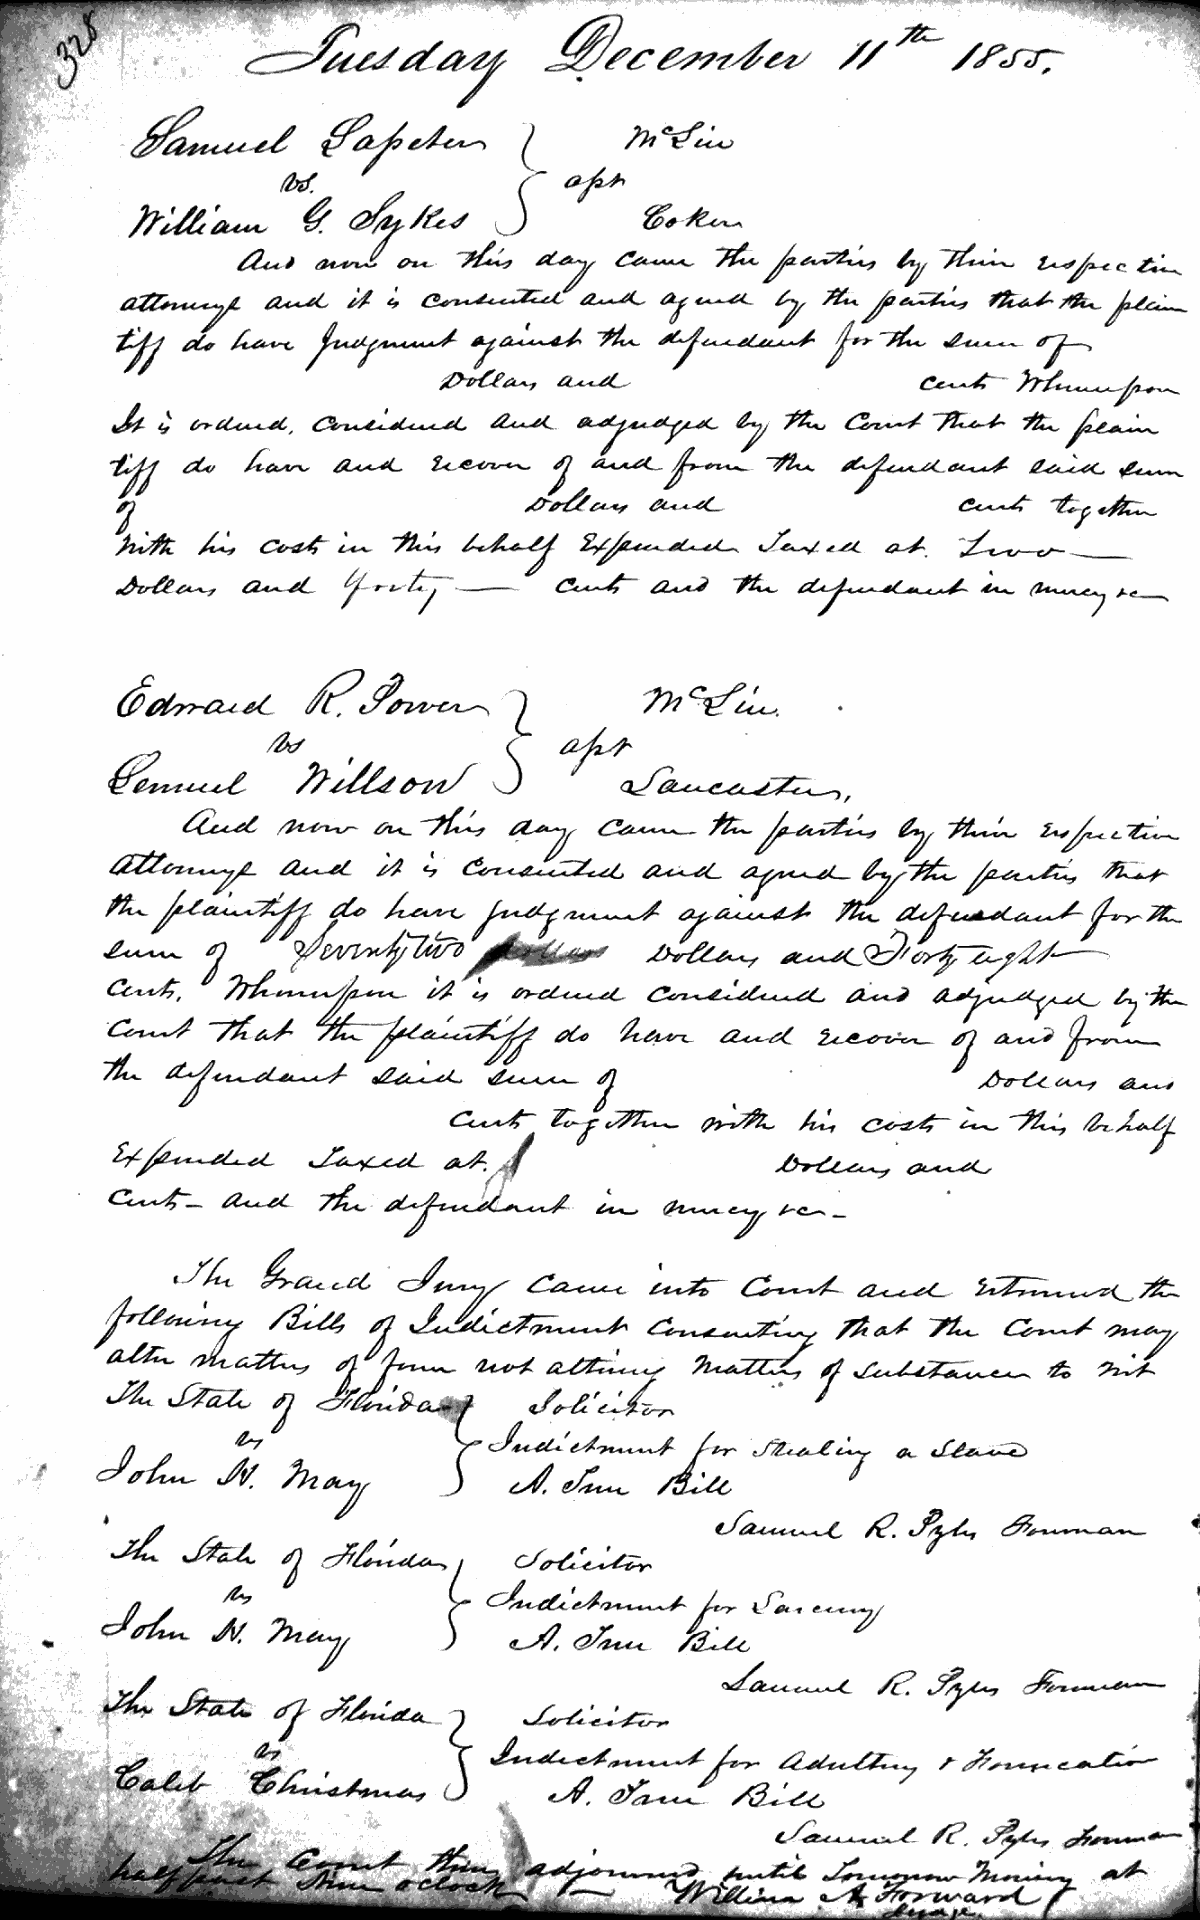 328
Tuesday December 11th 1855.
Samuel Lapeter McLin
vs. apt
William G. Sykes Coker
And now on this day came the parties by their respective
attorneys and it is consented and agreed by the parties that the plain
tiff do have Judgment against the defendant for the sum of
Dollars and cents Whereupon
It is ordered, considered and adjudged by the Court that the plain
tiff do have and recover of and from the defendant said sum
of Dollars and cents together
with his costs in this behalf Expended Taxed at. Two
Dollars and forty — cents and the defendant in mercy &c
Edward R. Powers McLin.
vs apt
Lemuel Willson Lancaster,
And now on this day came the parties by their respective
attorneys and it is consented and agreed by the parties that
the plaintiff do have judgment against the defendant for the
sum of Seventy two Dollars and Forty eight
Cents. Whereupon it is ordered considered and adjudged by the
Court that the plaintiff do have and recover of and from
the defendant said sum of Dollars and
cents together with his costs in this behalf
Expended Taxed at. Dollars and
cents — and the defendant in mercy &c —
The Grand Jury came into Court and returned the
following Bills of Indictment consenting that the Court may
alter matters of form not altering matters of substance to wit
The State of Florida Solicitor
vs Indictment for Stealing a Slave
John N. May A. True Bill
Samuel R. Pyles Foreman
The State of Florida Solicitor
vs Indictment for Larceny
John N. May A. True Bill
Samuel R. Pyles Foreman
The State of Florida Solicitor
vs Indictment for Adultery & Fornication
Caleb Christmas A. True Bill
Samuel R. Pyles Foreman
The Court then adjourned until Tomorrow Morning at
half past Nine oclock William A. Forward
Judge.